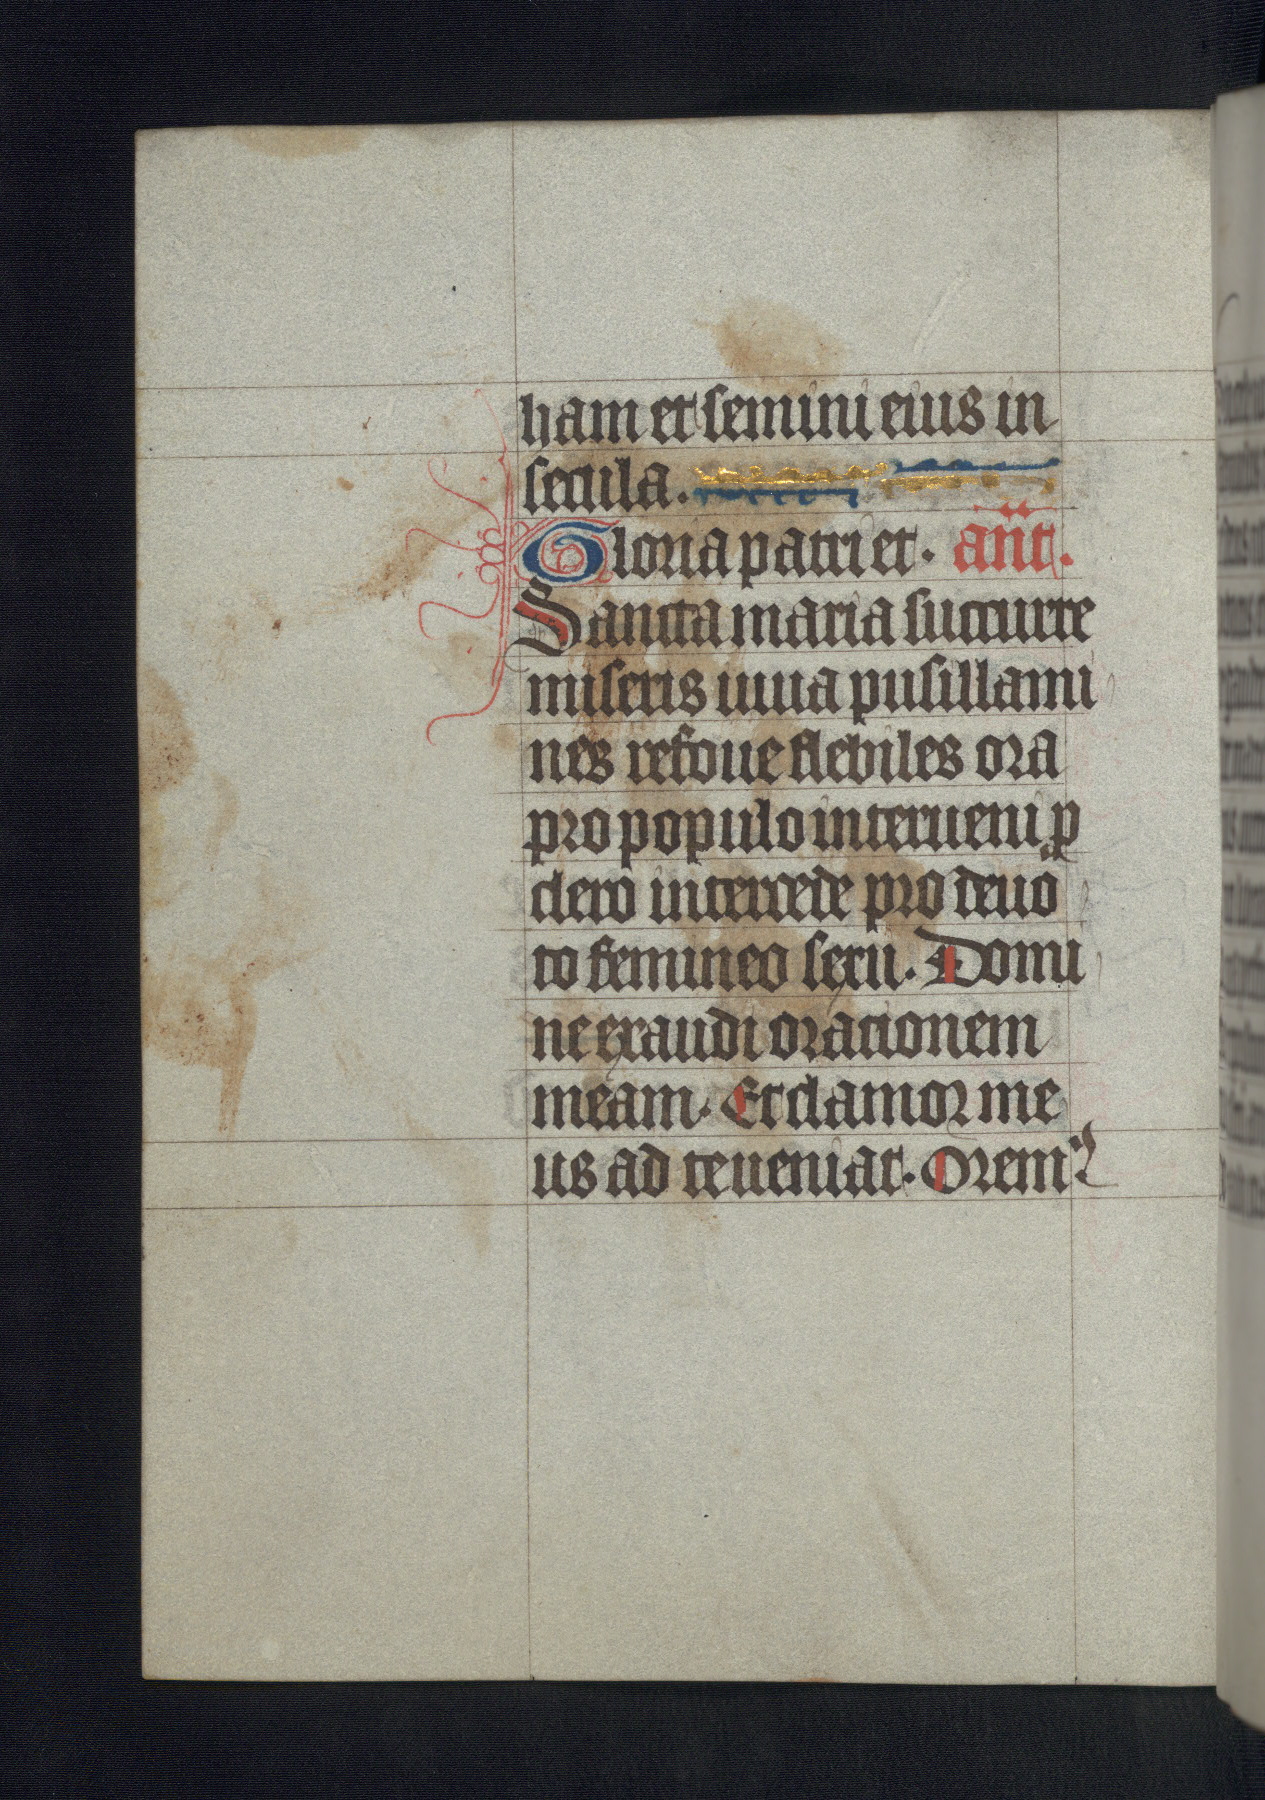 ham et semini eius in
secula.
Gloria patri et. ant.
Sancta maria succurre
miseris iuua pusillani
nes refoue flebiles ora
pro populo interueni p
clero intercede pro deuo
to femineo sexu. Domi
ne exaudi orationem
meam. Et clamor me
us ad te ueniat. Orem⁹